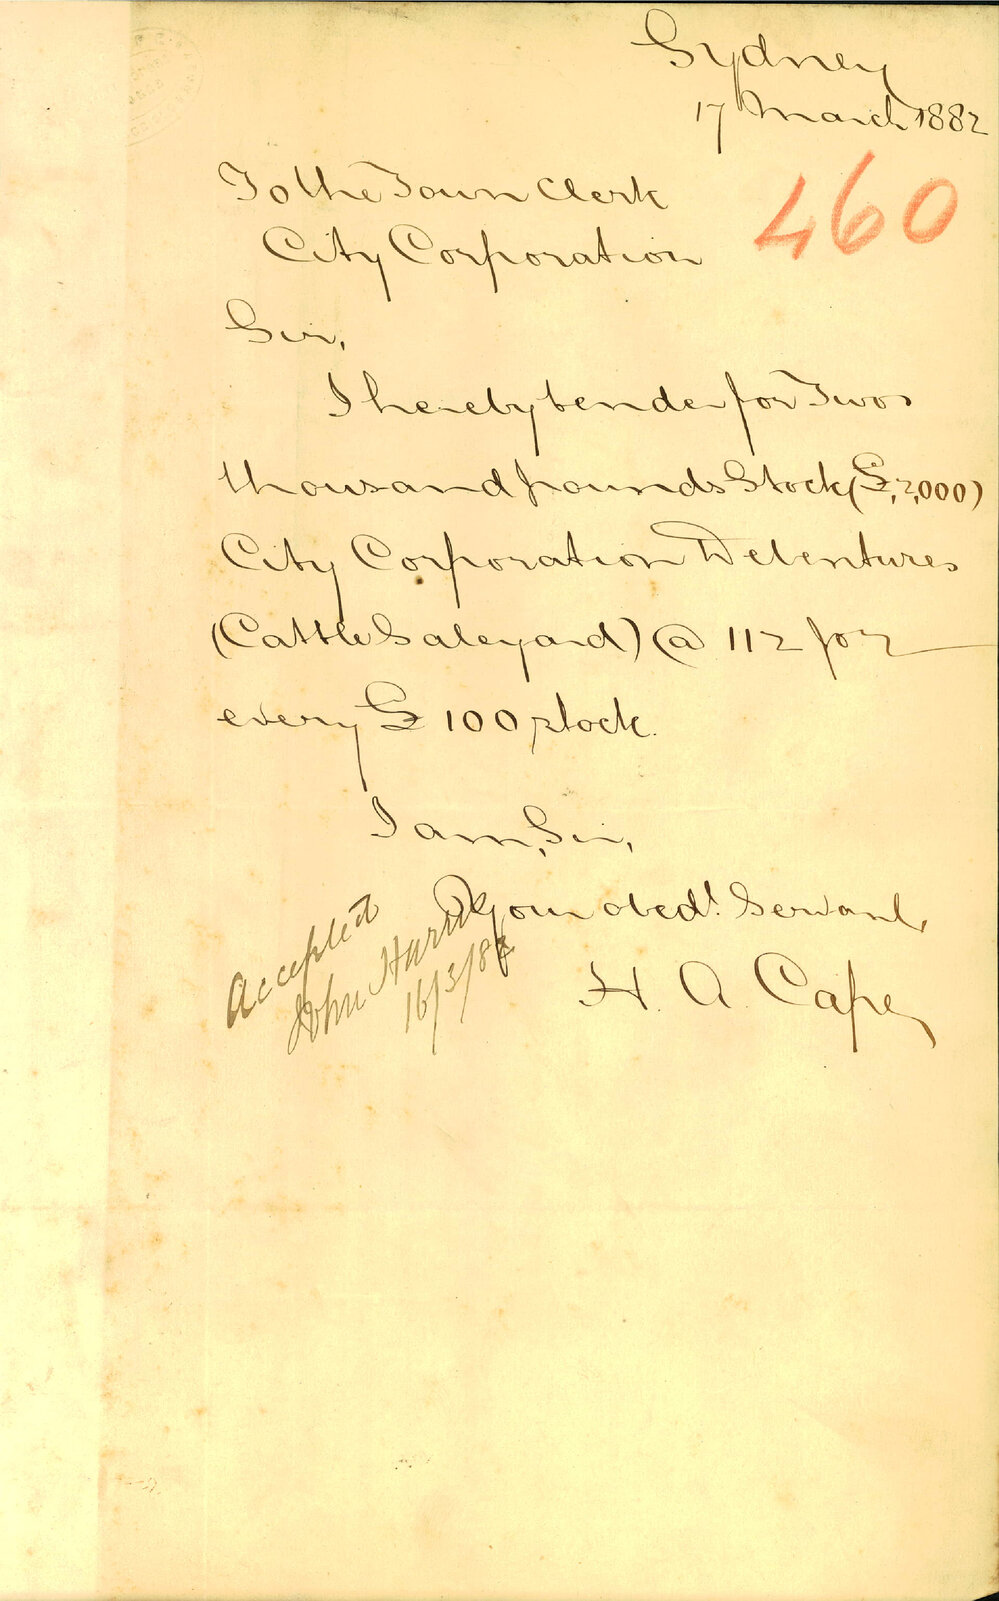 Sydney
17 March 1882
460
To the Town Clerk
City Corporation
Sir,
I hereby tender for Two
thousand pounds Stock (£2,000)
City Corporation Debentures
(Cattle Saleyard) @ 112 for
every £100 stock.
I am, Sir,
Your obedt. Servant,
H. A. Cape
Accepted
John Harris
16/3/82